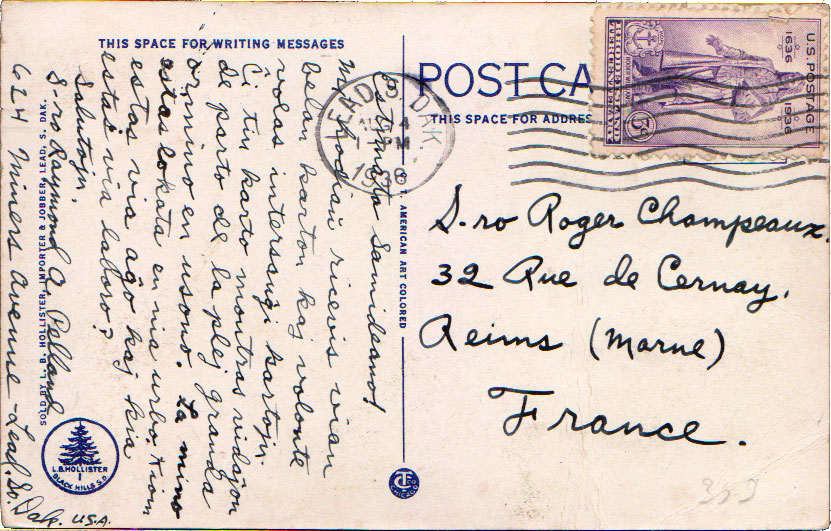 THIS SPACE FOR WRITING MESSAGES
Estimata Samideano!
Mi hodiaŭ ricevis vian
belan karton kaj volonte
volas interŝanĝi kartojn.
Ĉi tiu karto montras vidaĵon
de parto de la plej granda
ormino en usono. La mino
estas lokata en nia urbo. Kiom
estas via aĝo kaj kia
estas via laboro?
Salutojn,
S-ro Raymond O. Pelland
624 Miners Avenue - Lead, So. Dak. U.S.A.
SOLD BY L. B. HOLLISTER, IMPORTER & JOBBER, LEAD, S. DAK.
L.B. HOLLISTER
BLACK HILLS S.D.
AMERICAN ART COLORED
CHICAGO
POST CA
THIS SPACE FOR ADDRES
LEAD DAK.
14
PM
U.S. POSTAGE
1636 1936
3¢
S-ro Roger Champeaux.
32 Rue de Cernay.
Reims (Marne)
France.